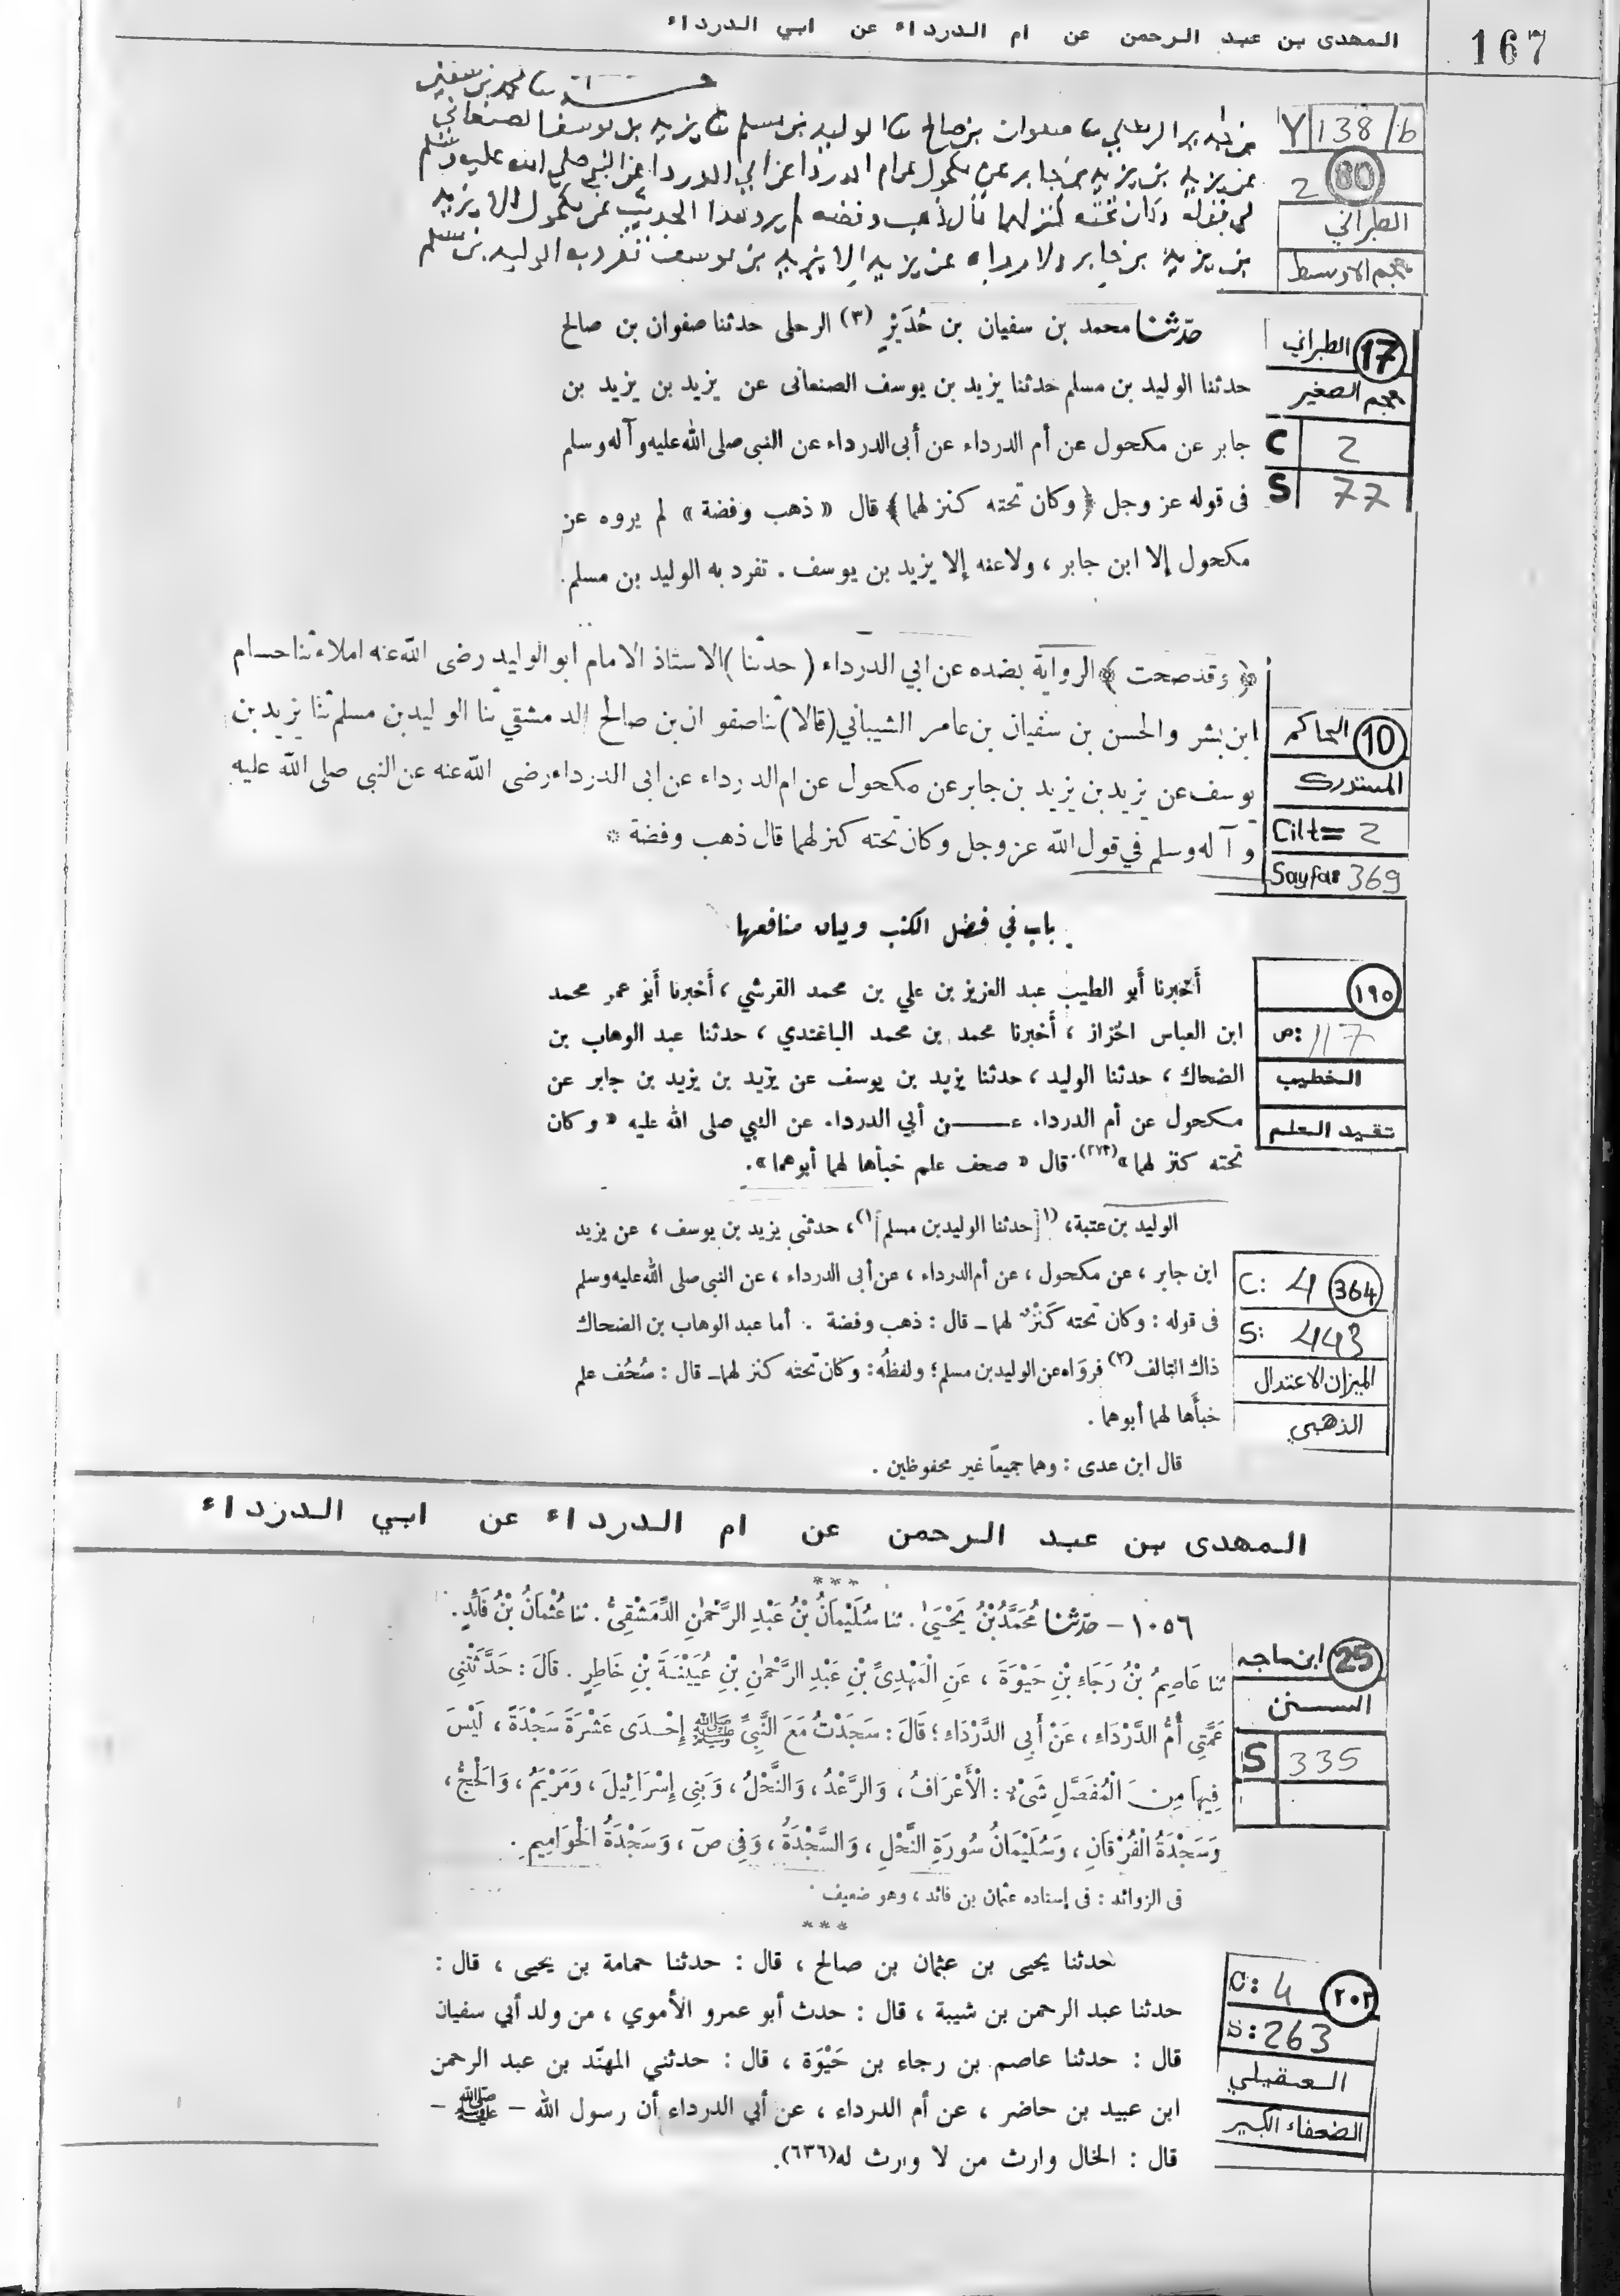 167
المهدى بن عبد الرحمن عن ام الدرداء عن ابي الدرداء
Y 138/b
80
2
الطبراني
معجم الاوسط
صالح سا الوليد بن مسلم سا يزيد بن يوسف الصنعاني
عن يزيد بن يزيد بن جابر عن مكحول عن ام الدردا عن ابي الدردا عن النبي صلى الله عليه وسلم
وكان تحته كنز لهما قال ذهب وفضه لم يرو هذا الحديث عن مكحول الا يزيد
بن يزيد بن جابر ولا رواه عن يزيد الا يزيد بن يوسف تفرد به الوليد بن مسلم
17 الطبراني
معجم الصغير
C 2
S 77
حدّثنا محمد بن سفيان بن حُدَيْرٍ (٣) الرحلى حدثنا صفوان بن صالح
حدثنا الوليد بن مسلم حدثنا يزيد بن يوسف الصنعانى عن يزيد بن يزيد بن
جابر عن مكحول عن أم الدرداء عن أبى الدرداء عن النبى صلى الله عليه وآله وسلم
فى قوله عز وجل ﴿ وكان تحته كنز لهما ﴾ قال « ذهب وفضة » لم يروه عن
مكحول إلا ابن جابر ، ولا عنه إلا يزيد بن يوسف . تفرد به الوليد بن مسلم .
10 الحاكم
المستدرك
Cilt= 2
Sayfa= 369
﴿ وقد صحت ﴾ الرواية بضده عن ابي الدرداء ( حدثنا ) الاستاذ الامام ابو الوليد رضى الله عنه املاء ثنا حسام
ابن بشر والحسن بن سفيان بن عامر الشيباني (قالا) ثنا صفوان بن صالح الدمشقي ثنا الوليد بن مسلم ثنا يزيد بن
يوسف عن يزيد بن يزيد بن جابر عن مكحول عن ام الدرداء عن ابى الدرداء رضى الله عنه عن النبى صلى الله عليه
وآله وسلم في قول الله عز وجل وكان تحته كنز لهما قال ذهب وفضة *
باب في فضل الكتب وبيان منافعها
١٩٠
ص: 117
الخطيب
تقييد العلم
أخبرنا أبو الطيب عبد العزيز بن علي بن محمد القرشي ، أخبرنا أبو عمر محمد
ابن العباس الخزاز ، أخبرنا محمد بن محمد الباغندي ، حدثنا عبد الوهاب بن
الضحاك ، حدثنا الوليد ، حدثنا يزيد بن يوسف عن يزيد بن يزيد بن جابر عن
مكحول عن أم الدرداء عـــن أبي الدرداء عن النبي صلى الله عليه « وكان
تحته كنز لهما »(٢٧٣). قال « صحف علم خبأها لهما أبوهما ».
364
C: 4
S: 443
الميزان الاعتدال
الذهبي
الوليد بن عتبة، (١[حدثنا الوليد بن مسلم]١)، حدثنى يزيد بن يوسف ، عن يزيد
ابن جابر ، عن مكحول ، عن أم الدرداء ، عن أبى الدرداء ، عن النبى صلى الله عليه وسلم
فى قوله : وكان تحته كَنْزٌ لهما ـ قال : ذهب وفضة . أما عبد الوهاب بن الضحاك
ذاك التالف (٢) فرواه عن الوليد بن مسلم ؛ ولفظُه : وكان تحته كنز لهما ـ قال : صُحُف علم
خبأَها لهما أبوهما .
قال ابن عدى : وهما جميعاً غير محفوظين .
المهدى بن عبد الرحمن عن ام الدرداء عن ابي الدرداء
***
25 ابن ماجه
السنن
S 335
١٠٥٦ – حدّثنا مُحَمَّدُ بْنُ يَحْيَىٰ . ثنا سُلَيْمَانُ بْنُ عَبْدِ الرَّحْمٰنِ الدِّمَشْقِىُّ . ثنا عُثْمَانُ بْنُ فَائِدٍ .
ثنا عَاصِمُ بْنُ رَجَاءِ بْنِ حَيْوَةَ ، عَنِ الْمَهْدِىِّ بْنِ عَبْدِ الرَّحْمٰنِ بْنِ عُيَيْنَةَ بْنِ خَاطِرٍ . قَالَ : حَدَّثَتْنِى
عَمَّتِى أُمُّ الدَّرْدَاءِ ، عَنْ أَبِى الدَّرْدَاءِ ؛ قَالَ : سَجَدْتُ مَعَ النَّبِىِّ ﷺ إِحْدَى عَشْرَةَ سَجْدَةً ، لَيْسَ
فِيهَا مِنَ الْمُفَصَّلِ شَىْءٌ : الْأَعْرَافُ ، وَالرَّعْدُ ، وَالنَّحْلُ ، وَبَنِى إِسْرَائِيلَ ، وَمَرْيَمُ ، وَالْحَجُّ ،
وَسَجْدَةُ الْفُرْقَانِ ، وَسُلَيْمَانُ سُورَةِ النَّحْلِ ، وَالسَّجْدَةُ ، وَفِى صٓ ، وَسَجْدَةُ الْحَوَامِيمِ .
فى الزوائد : فى إسناده عثمان بن فائد ، وهو ضعيف .
***
٢٠٢
C: 4
S: 263
العقيلي
الضعفاء الكبير
حدثنا يحيى بن عثمان بن صالح ، قال : حدثنا حمامة بن يحيى ، قال :
حدثنا عبد الرحمن بن شيبة ، قال : حدث أبو عمرو الأموي ، من ولد أبي سفيان
قال : حدثنا عاصم بن رجاء بن حَيْوَة ، قال : حدثني المهنّد بن عبد الرحمن
ابن عبيد بن حاضر ، عن أم الدرداء ، عن أبي الدرداء أن رسول الله – ﷺ –
قال : الخال وارث من لا وارث له(٦٣٦).